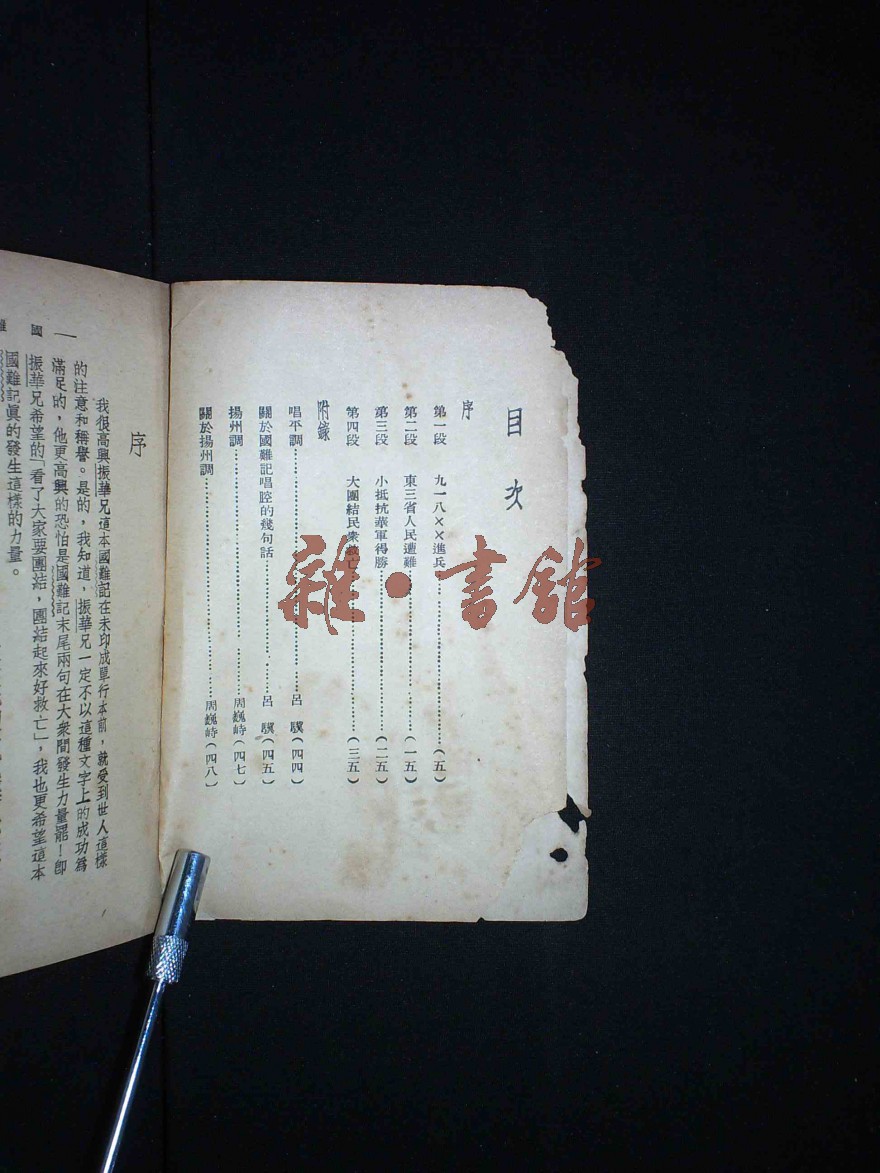 目次
序
第一段 九一八××進兵………………(五)
第二段 東三省人民遭難………………(一五)
第三段 小抵抗華軍得勝………………(二五)
第四段 大團結民衆救亡………………(三五)
附錄
唱平調………………呂 驥(四四)
關於國難記唱腔的幾句話………………呂 驥(四五)
揚州調………………周巍峙(四七)
關於揚州調………………周巍峙(四八)
雜·書館
國
序
我很高興振華兄這本國難記在未印成單行本前,就受到世人這樣
的注意和稱譽。是的,我知道,振華兄一定不以這種文字上的成功為
滿足的,他更高興的恐怕是國難記末尾兩句在大衆間發生力量罷!卽
振華兄希望的「看了大家要團結,團結起來好救亡」,我也更希望這本
國難記眞的發生這樣的力量。